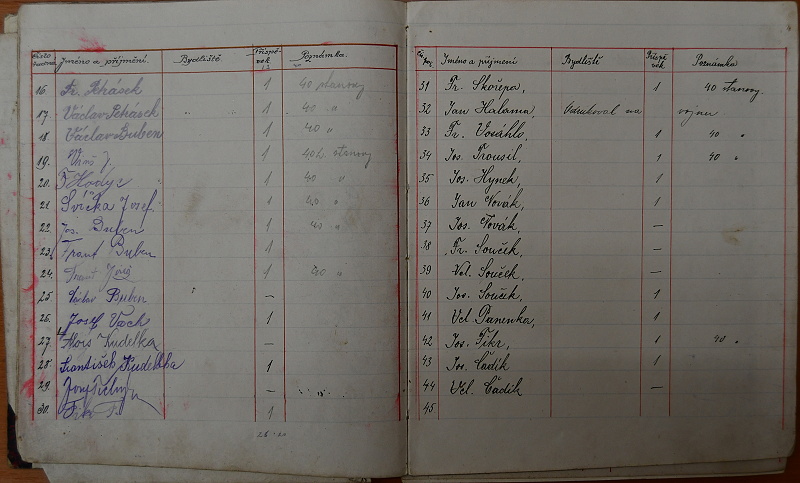 Číslo Jméno a příjmení. Bydliště. Příspěvek Poznámka.
16 Fr. Pehásek 1 40 stanovy
17. Václav Pehásek 1 40 "
18 Václav Buben 1 40 "
19. 1 40 h. stanovy
20. Hodyc 1 40 "
21 Svíčka Josef. 1 40 "
22 Jos. Buben 1 40 "
23. Frant Buben 1
24. Frant 1 40 "
25. Václav Buben —
26. Josef Vach 1
27. Alois Kudelka —
28. František Kudelka 1
29. Josef —
30. Fikr F. 1
Jméno a příjmení Bydliště Příspěvek Poznámka
31 Fr. Skořepa, 1 40 stanovy.
32 Jan Halama, Odrukoval na vojnu
33 Fr. Vosáhlo, 1 40 "
34 Jos. Trousil, 1 40 "
35 Jos. Hynek, 1
36 Jan Novák, 1
37 Jos. Novák, —
38 Fr. Souček, —
39 Vol. Souček, —
40 Jos. Souček, 1
41 Vcl. Panenka, 1
42 Jos. Fikr, 1 40 "
43 Jos. Čadík 1
44 Vcl. Čadík —
45